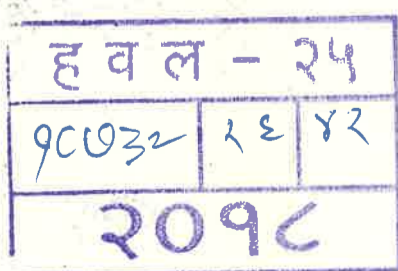 हवल - २५
१८७३२ २६ ४२
२०१८